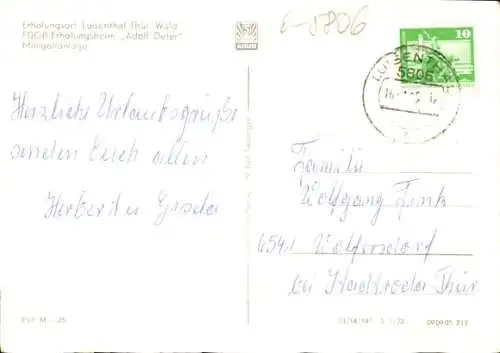 Erholungsort Luisenthal Thür. Wald
FDGB-Erholungsheim „Adolf Deter"
Minigolfanlage
6-5806
10
LUISENTHAL
5806
Herzliche Urlaubsgrüße
senden Euch allen
Herbert u. Gisela
Familie
Wolfgang Fink
6541 Waltersdorf
bei Stadtroda Thür
09 09 05 213